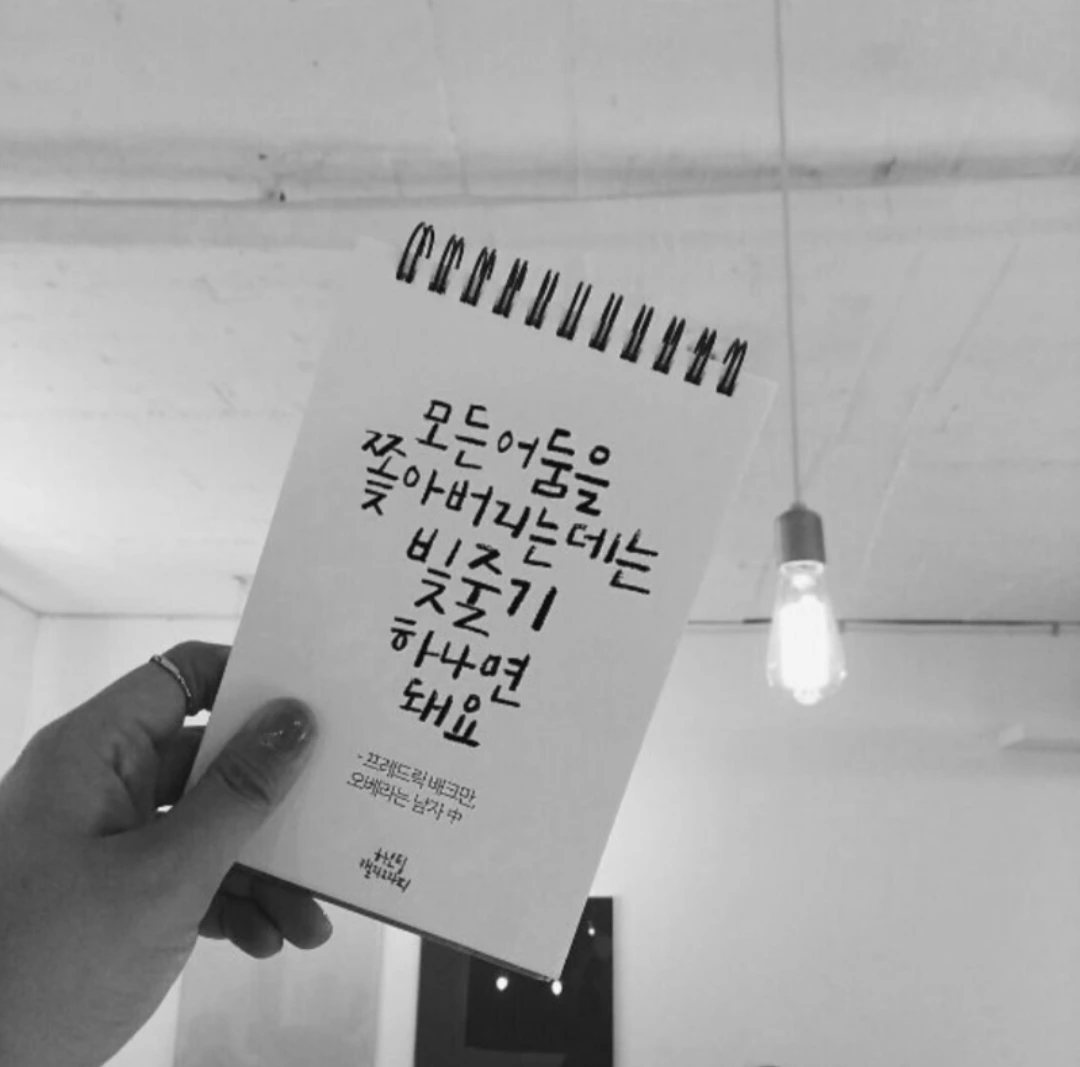 모든어둠을
쫓아버리는데는
빛줄기
하나면
돼요
- 프레드릭 배크만,
오베라는 남자 中
캘리그라피